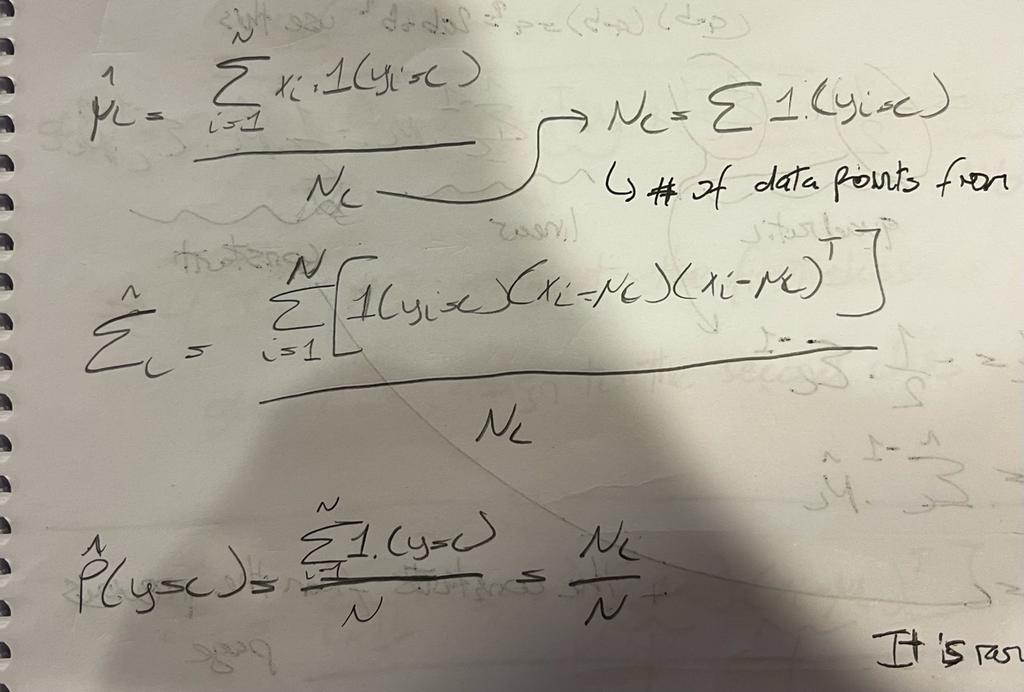 μ̂c = Σ_{i=1}^{N} xi · 1(yi=c) / Nc → Nc = Σ 1.(yi=c)
↳ # of data points from
Σ̂c = Σ_{i=1}^{N} [1(yi=c)(xi-μc)(xi-μc)^T] / Nc
P̂(y=c) = Σ_{i=1}^{N} 1.(y=c) / N = Nc / N
It is